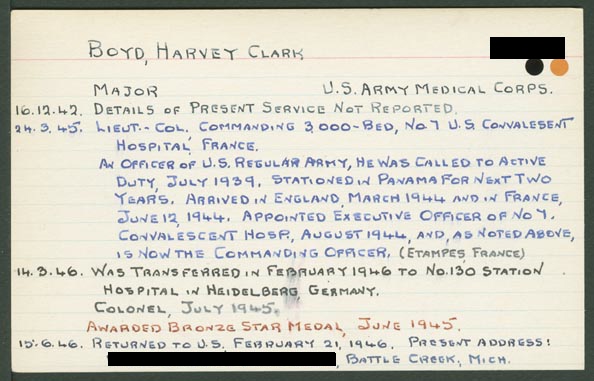 BOYD, HARVEY CLARK
MAJOR U.S. ARMY MEDICAL CORPS.
16.12.42. DETAILS OF PRESENT SERVICE NOT REPORTED.
24.3.45. LIEUT.-COL. COMMANDING 3,000-BED, NO.7 U.S. CONVALESENT
HOSPITAL, FRANCE.
AN OFFICER OF U.S. REGULAR ARMY, HE WAS CALLED TO ACTIVE
DUTY, JULY 1939. STATIONED IN PANAMA FOR NEXT TWO
YEARS. ARRIVED IN ENGLAND, MARCH 1944 AND IN FRANCE,
JUNE 12, 1944. APPOINTED EXECUTIVE OFFICER OF NO 7.
CONVALESCENT HOSP., AUGUST 1944, AND, AS NOTED ABOVE,
IS NOW THE COMMANDING OFFICER. (ETAMPES FRANCE)
14.3.46. WAS TRANSFERRED IN FEBRUARY 1946 TO NO.130 STATION
HOSPITAL IN HEIDELBERG, GERMANY.
COLONEL, JULY 1945.
AWARDED BRONZE STAR MEDAL, JUNE 1945.
15.6.46. RETURNED TO U.S. FEBRUARY 21, 1946. PRESENT ADDRESS:
, BATTLE CREEK, MICH.